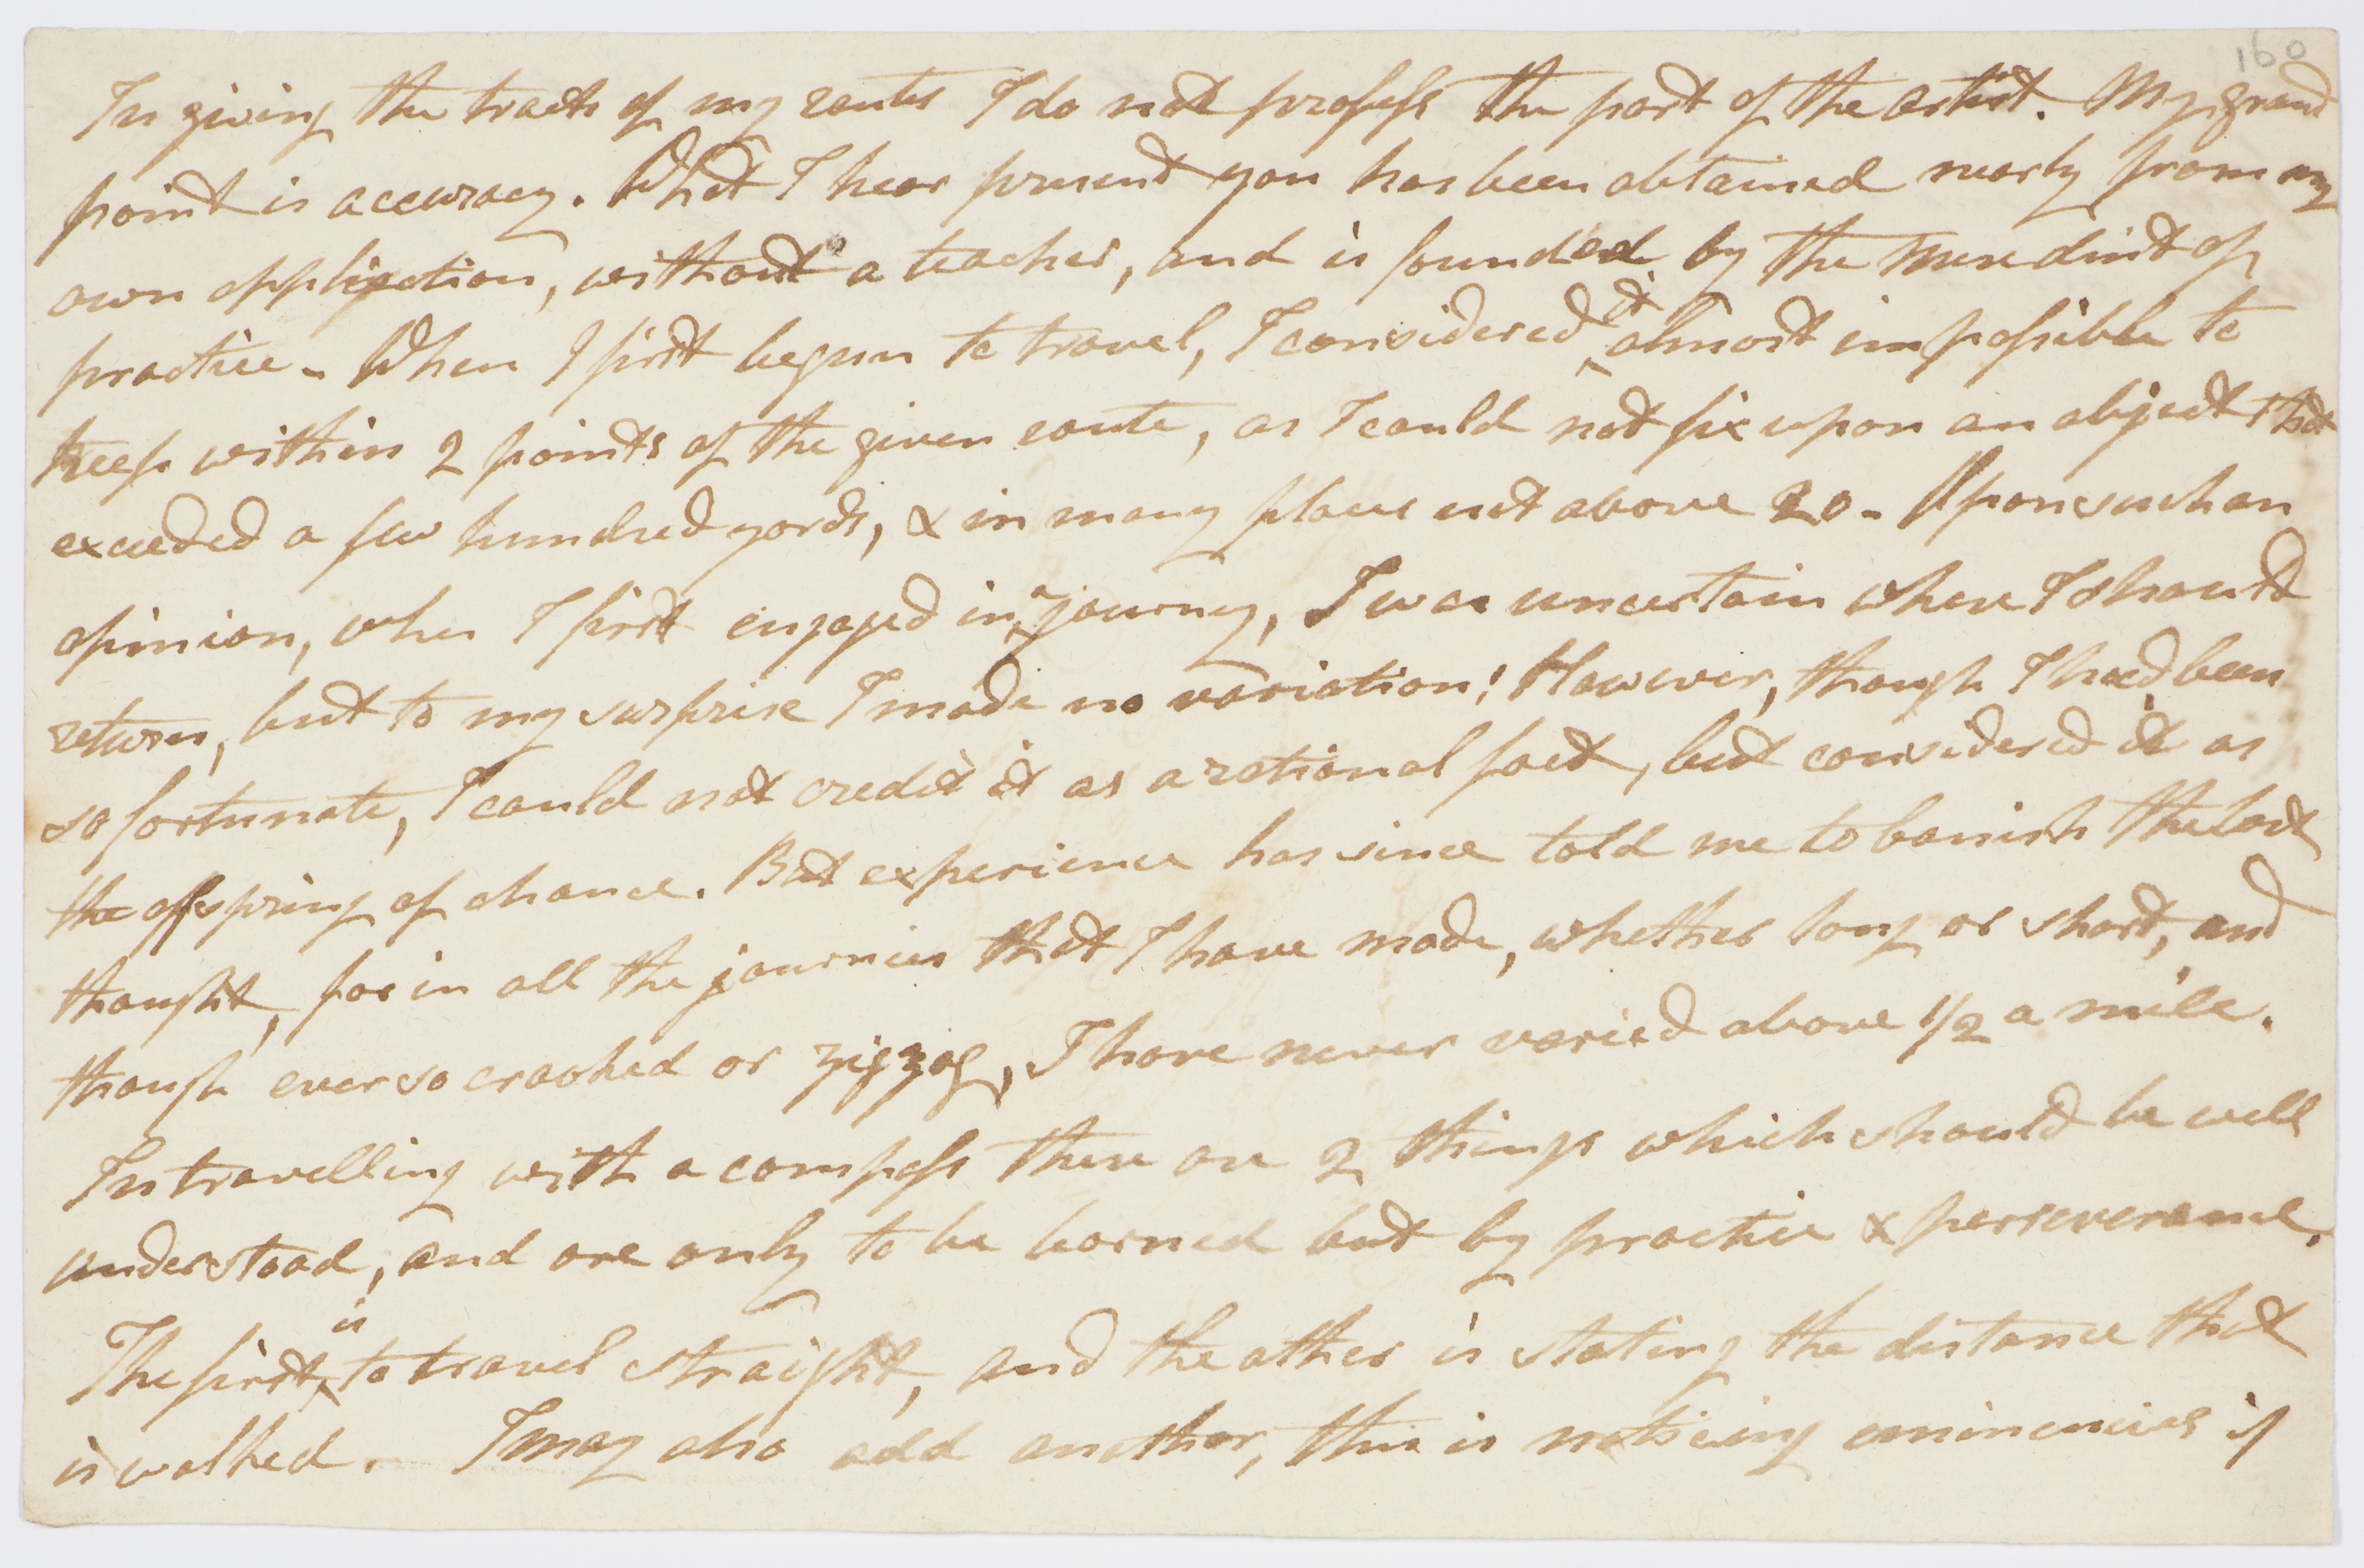 160
In giving the tracts of my routes I do not profess the part of the artist. My grand
point is accuracy. What I hear present you has been obtained nearly from my
own application, without a teacher, and is founded by the mere dint of
practice - When I first begun to travel, I considered it almost impossible to
keep within 2 points of the given route, as I could not fix upon an object that
exceeded a few hundred yards, & in many places not above 20 - Upon such an
opinion, when I first engaged in a journey, I was uncertain where I should
return, but to my surprise I made no variation! However, though I had been
so fortunate, I could not credit it as a rational fact, but considered it as
the offspring of chance. But experience has since told me to banish the last
thought, for in all the journies that I have made, whether long or short, and
though ever so crooked or zigzag, I have never varied above 1/2 a mile.
In travelling with a compass there are 2 things which should be well
understood, and are only to be learned but by practice & perseverance.
The first is to travel straight, and the other is stating the distance that
is walked. I may also add another, this is noticing eminences if